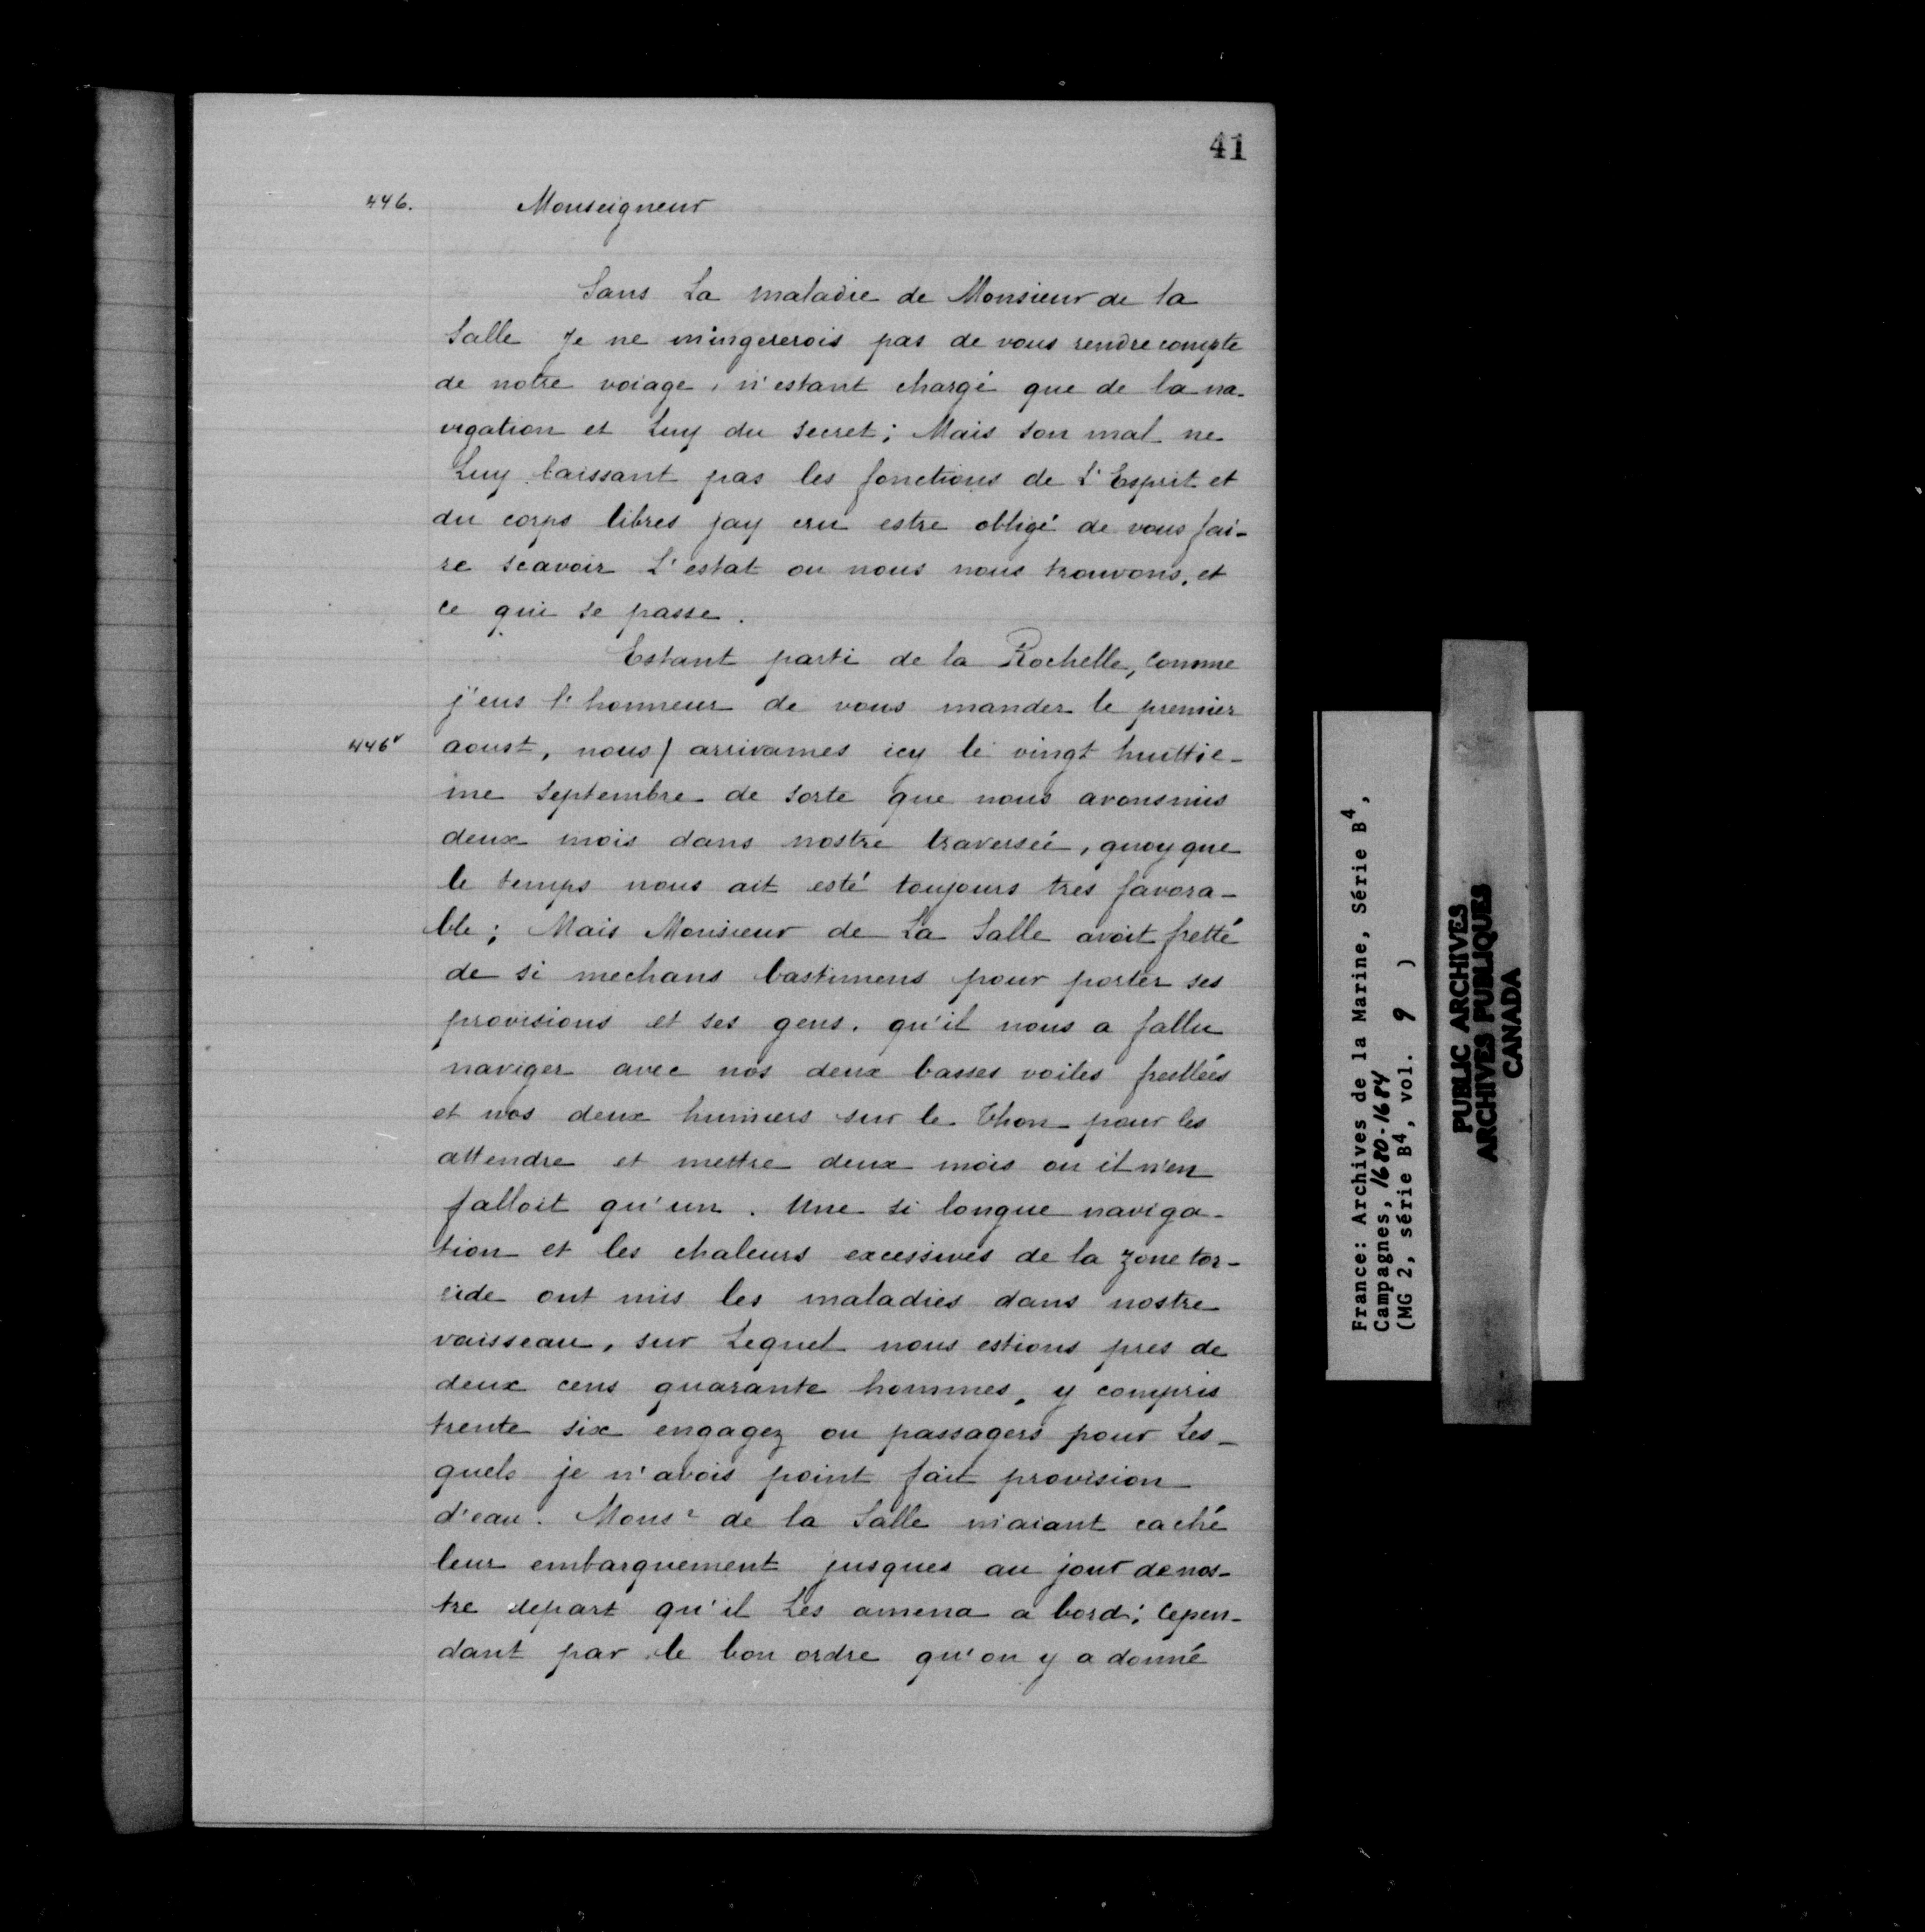 41
446.
Monseigneur
Sans La maladie de Monsieur de la
Salle Je ne m'ingererois pas de vous rendre compte
de notre voiage, n'estant chargé que de la na-
vigation et Luy du secret; Mais son mal ne
Luy laissant pas les fonctions de L'Esprit et
du corps libres jay cru estre obligé de vous fai-
re scavoir L'estat ou nous nous trouvons, et
ce qui se passe.
Estant parti de la Rochelle, comme
j'eus l'honneur de vous mander le premier
446v
aoust, nous / arrivames icy le vingt huittie-
me septembre de sorte que nous avons mis
deux mois dans nostre traversée, quoyque
le temps nous ait esté toujours tres favora-
ble; Mais Monsieur de La Salle avoit fretté
de si mechans bastimens pour porter ses
provisions et ses gens, qu'il nous a fallu
naviger avec nos deux basses voiles freslées
et nos deux huniers sur le Thon pour les
attendre et mettre deux mois ou il n'en
falloit qu'un. Une si longue naviga-
tion et les chaleurs excessives de la zone tor-
ride ont mis les maladies dans nostre
vaisseau, sur Lequel nous estions pres de
deux cens quarante hommes, y compris
trente six engagez ou passagers pour Les-
quels je n'avois point fait provision
d'eau. Monsr de la Salle m'aiant caché
leur embarquement jusques au jour de nos-
tre depart qu'il Les amena a bord; Cepen-
dant par le bon ordre qu'on y a donné
France: Archives de la Marine, Série B4,
Campagnes, 1680-1684
(MG 2, série B4, vol. 9 )
PUBLIC ARCHIVES
ARCHIVES PUBLIQUES
CANADA